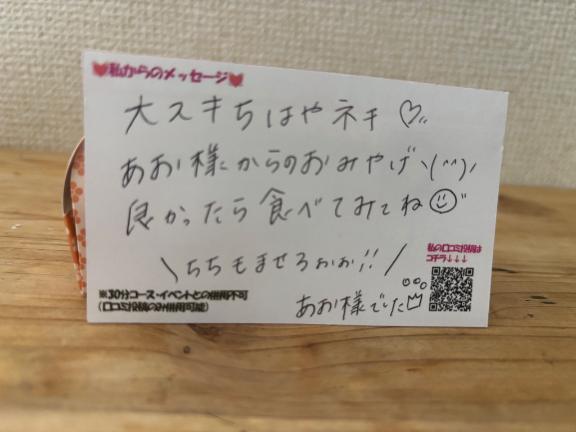 私からのメッセージ
大スキちはやネキ♡
あお様からのおみやげ\(^^)/
良かったら食べてみてね☺
\ちちもませろぉぉ!!/
私の口コミ投稿は
コチラ↓↓↓
※30分コース・イベントとの併用不可
(口コミ投稿のみ併用可能)
あお様でした